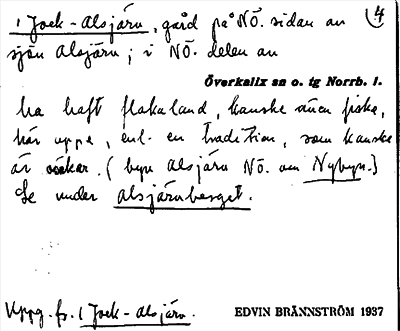 1 Jock-Alsjärn, gård på NÖ. sidan av 4
sjön Alsjärn; i NÖ. delen av
Överkalix sn o. tg Norrb. l.
ha haft flakaland, kanske även fiske,
här uppe, enl. en tradition, som kanske
är osäker. (byn Alsjärn NÖ. om Nybyn.)
Se under Alsjärnberget.
Uppg. fr. 1 Jock-Alsjärn.
EDVIN BRÄNNSTRÖM 1937